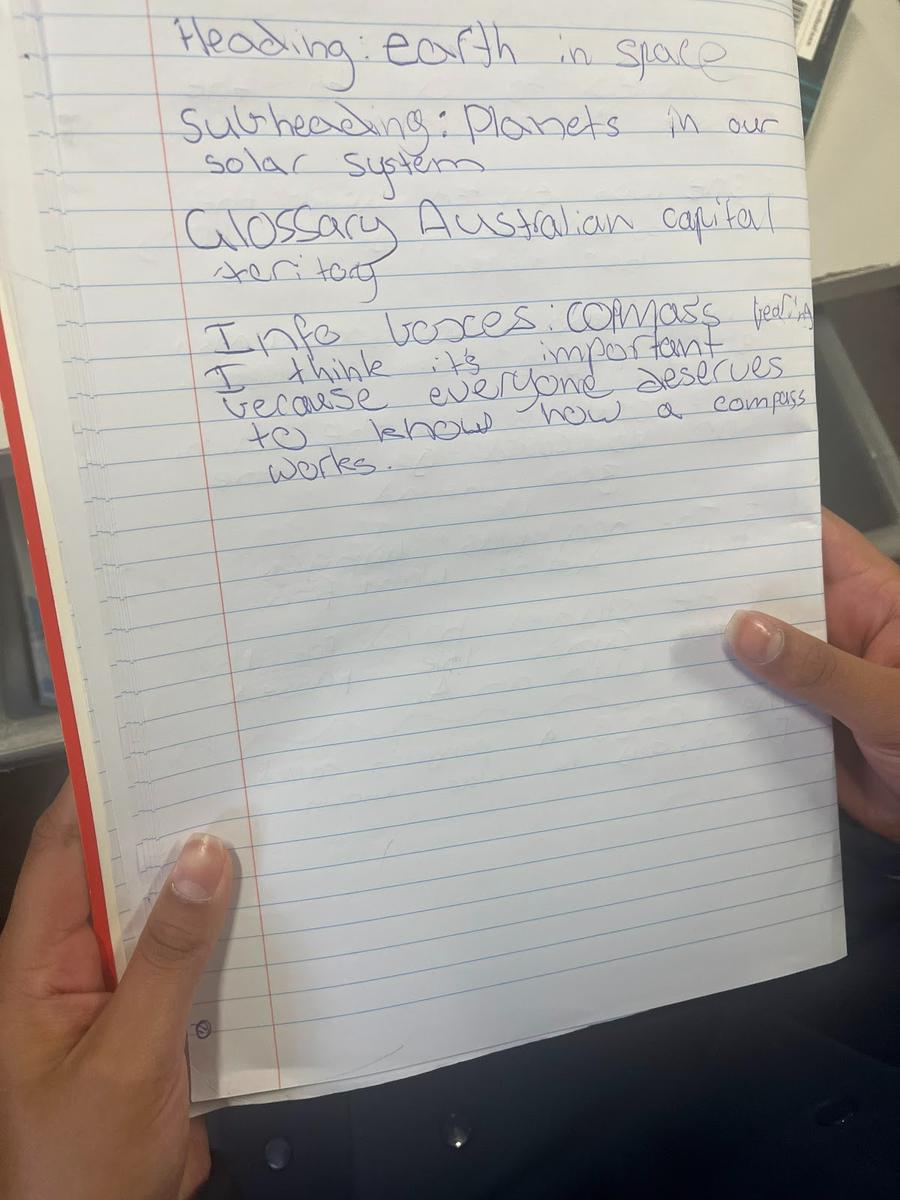 Heading: earth in space
Subheading: Planets in our
solar system
Glossary Australian capital
teritory
Info boxes: compass
I think it's important
because everyone deserves
to know how a compass
works.